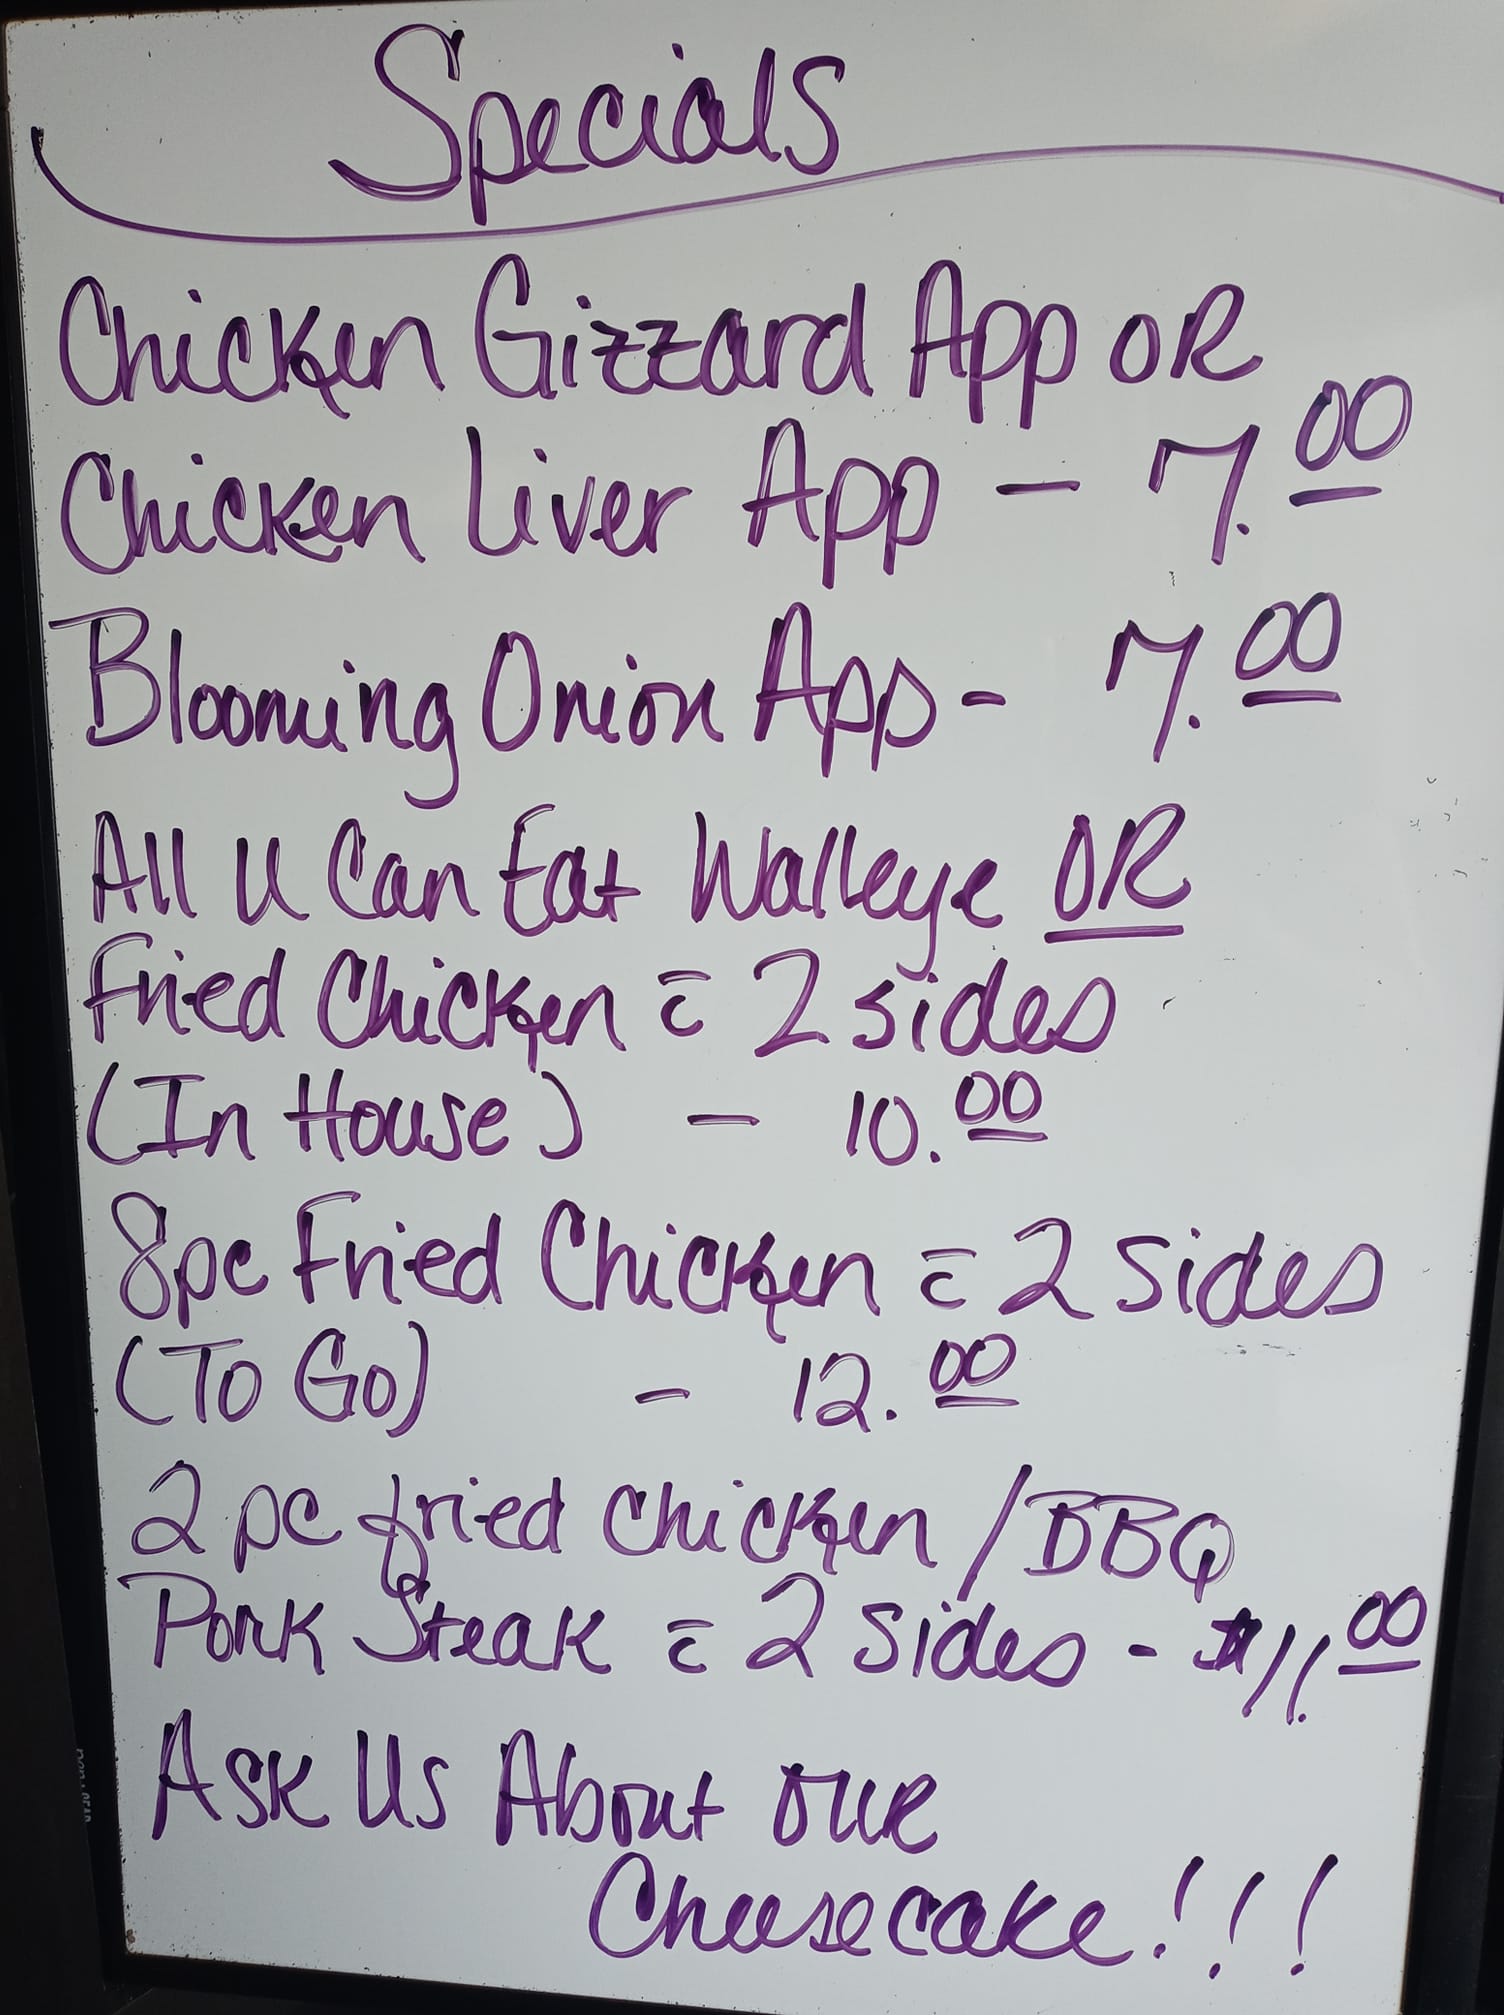 Specials
Chicken Gizzard App OR
Chicken Liver App - 7.00
Blooming Onion App - 7.00
All U Can Eat Walleye OR
Fried Chicken c̄ 2 sides
(In House) - 10.00
8pc Fried Chicken c̄ 2 sides
(To Go) - 12.00
2 pc fried chicken / BBQ
Pork Steak c̄ 2 sides - $11.00
Ask Us About our
Cheesecake!!!